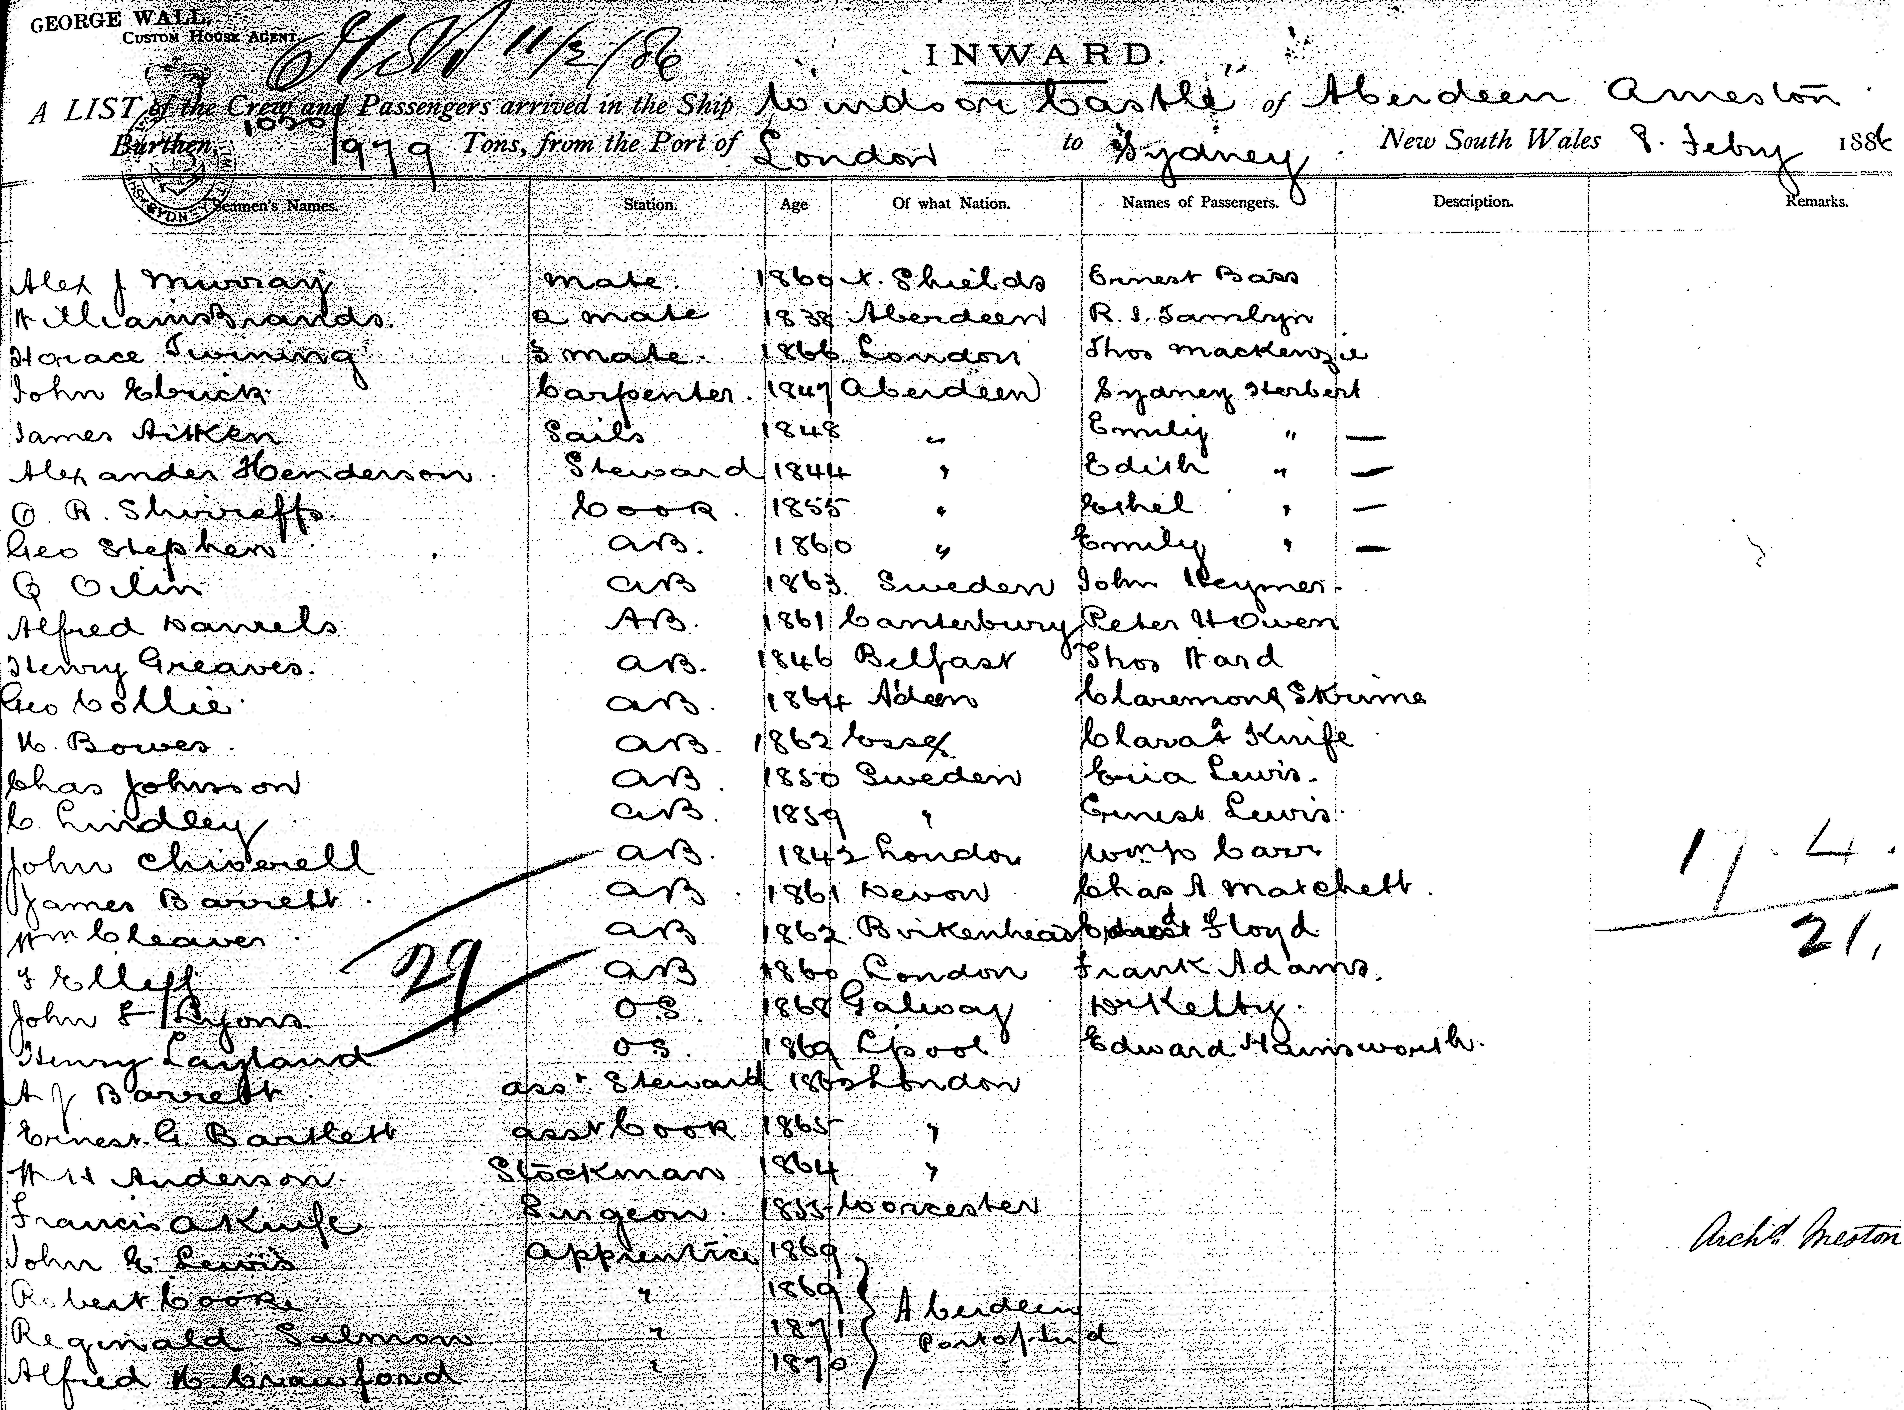 GEORGE WALL,
CUSTOM HOUSE AGENT.
11/2/86
INWARD.
A LIST of the Crew and Passengers arrived in the Ship Windsor Castle of Aberdeen A Meston
Burthen, 1979 Tons, from the Port of London to Sydney New South Wales 8. Febry 1886
Seamen's Names. Station. Age Of what Nation. Names of Passengers. Description. Remarks.
Alex J Murray Mate. 1860 N. Shields Ernest Bass
William Brands. 2 mate 1838 Aberdeen R. I. Tamlyn
Horace Twining 3 mate. 1866 London Thos Mackenzie
John Ebrick Carpenter. 1847 Aberdeen Sydney Herbert
James Aitken Sails 1848 " Emily " —
Alexander Henderson Steward 1844 " Edith " —
R. Shirreffs Cook. 1855 " Ethel " —
Geo Stephen AB. 1860 " Emily " —
Oilin AB 1863. Sweden John Heymer.
Alfred Daniels AB. 1861 Canterbury Peter H Owen
Henry Greaves. AB. 1846 Belfast Thos Ward
Geo Collie AB. 1864 Adeen Claremont Skrime
H. Bowes. AB. 1862 Essex Clara A Knife
Chas Johnson AB. 1850 Sweden Eria Lewis.
C. Lindley AB. 1859 " Ernest Lewis.
John Chiverell AB. 1842 London Carr
James Barrett. AB. 1861 Devon Chas A Matchett.
Wm Cleaver AB 1862 Birkenhead Floyd
F Elleff AB 1860 London Frank Adams.
John F Lyons OS. 1868 Galway W Kelty.
Henry Layland OS. 1869 Lpool Edward Hainsworth.
A J Barrett asst Steward London
Ernest G Bartlett asst Cook 1865 "
W H Anderson Stockman 1864 "
Francis A Knife Surgeon. 1855 Worcester
John E. Lewis Apprentice 1869
Robert Cooke " 1869
Reginald Salmon " 1871
Alfred H Crawford " 1870
Aberdeen
Port of Ind
29
17. 4.
21.
Archd. Meston